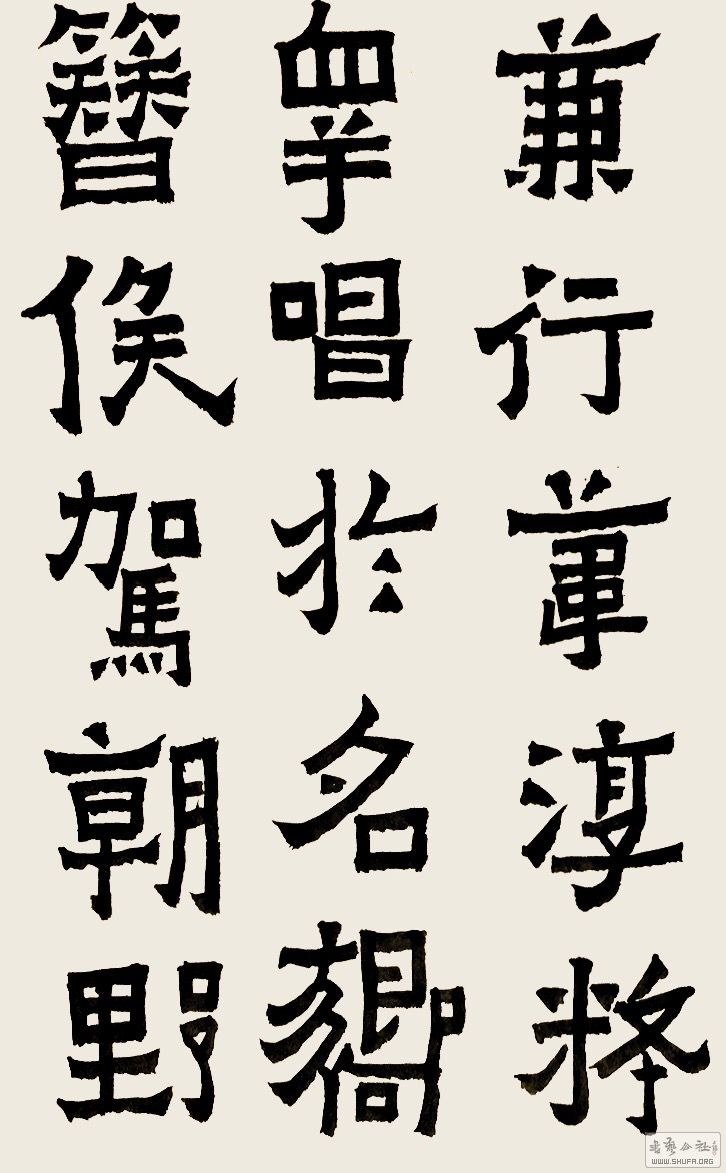 兼行葦淳粹
睪唱於名嚮
簪俟駕朝野
书艺公社
WWW.SHUFA.ORG